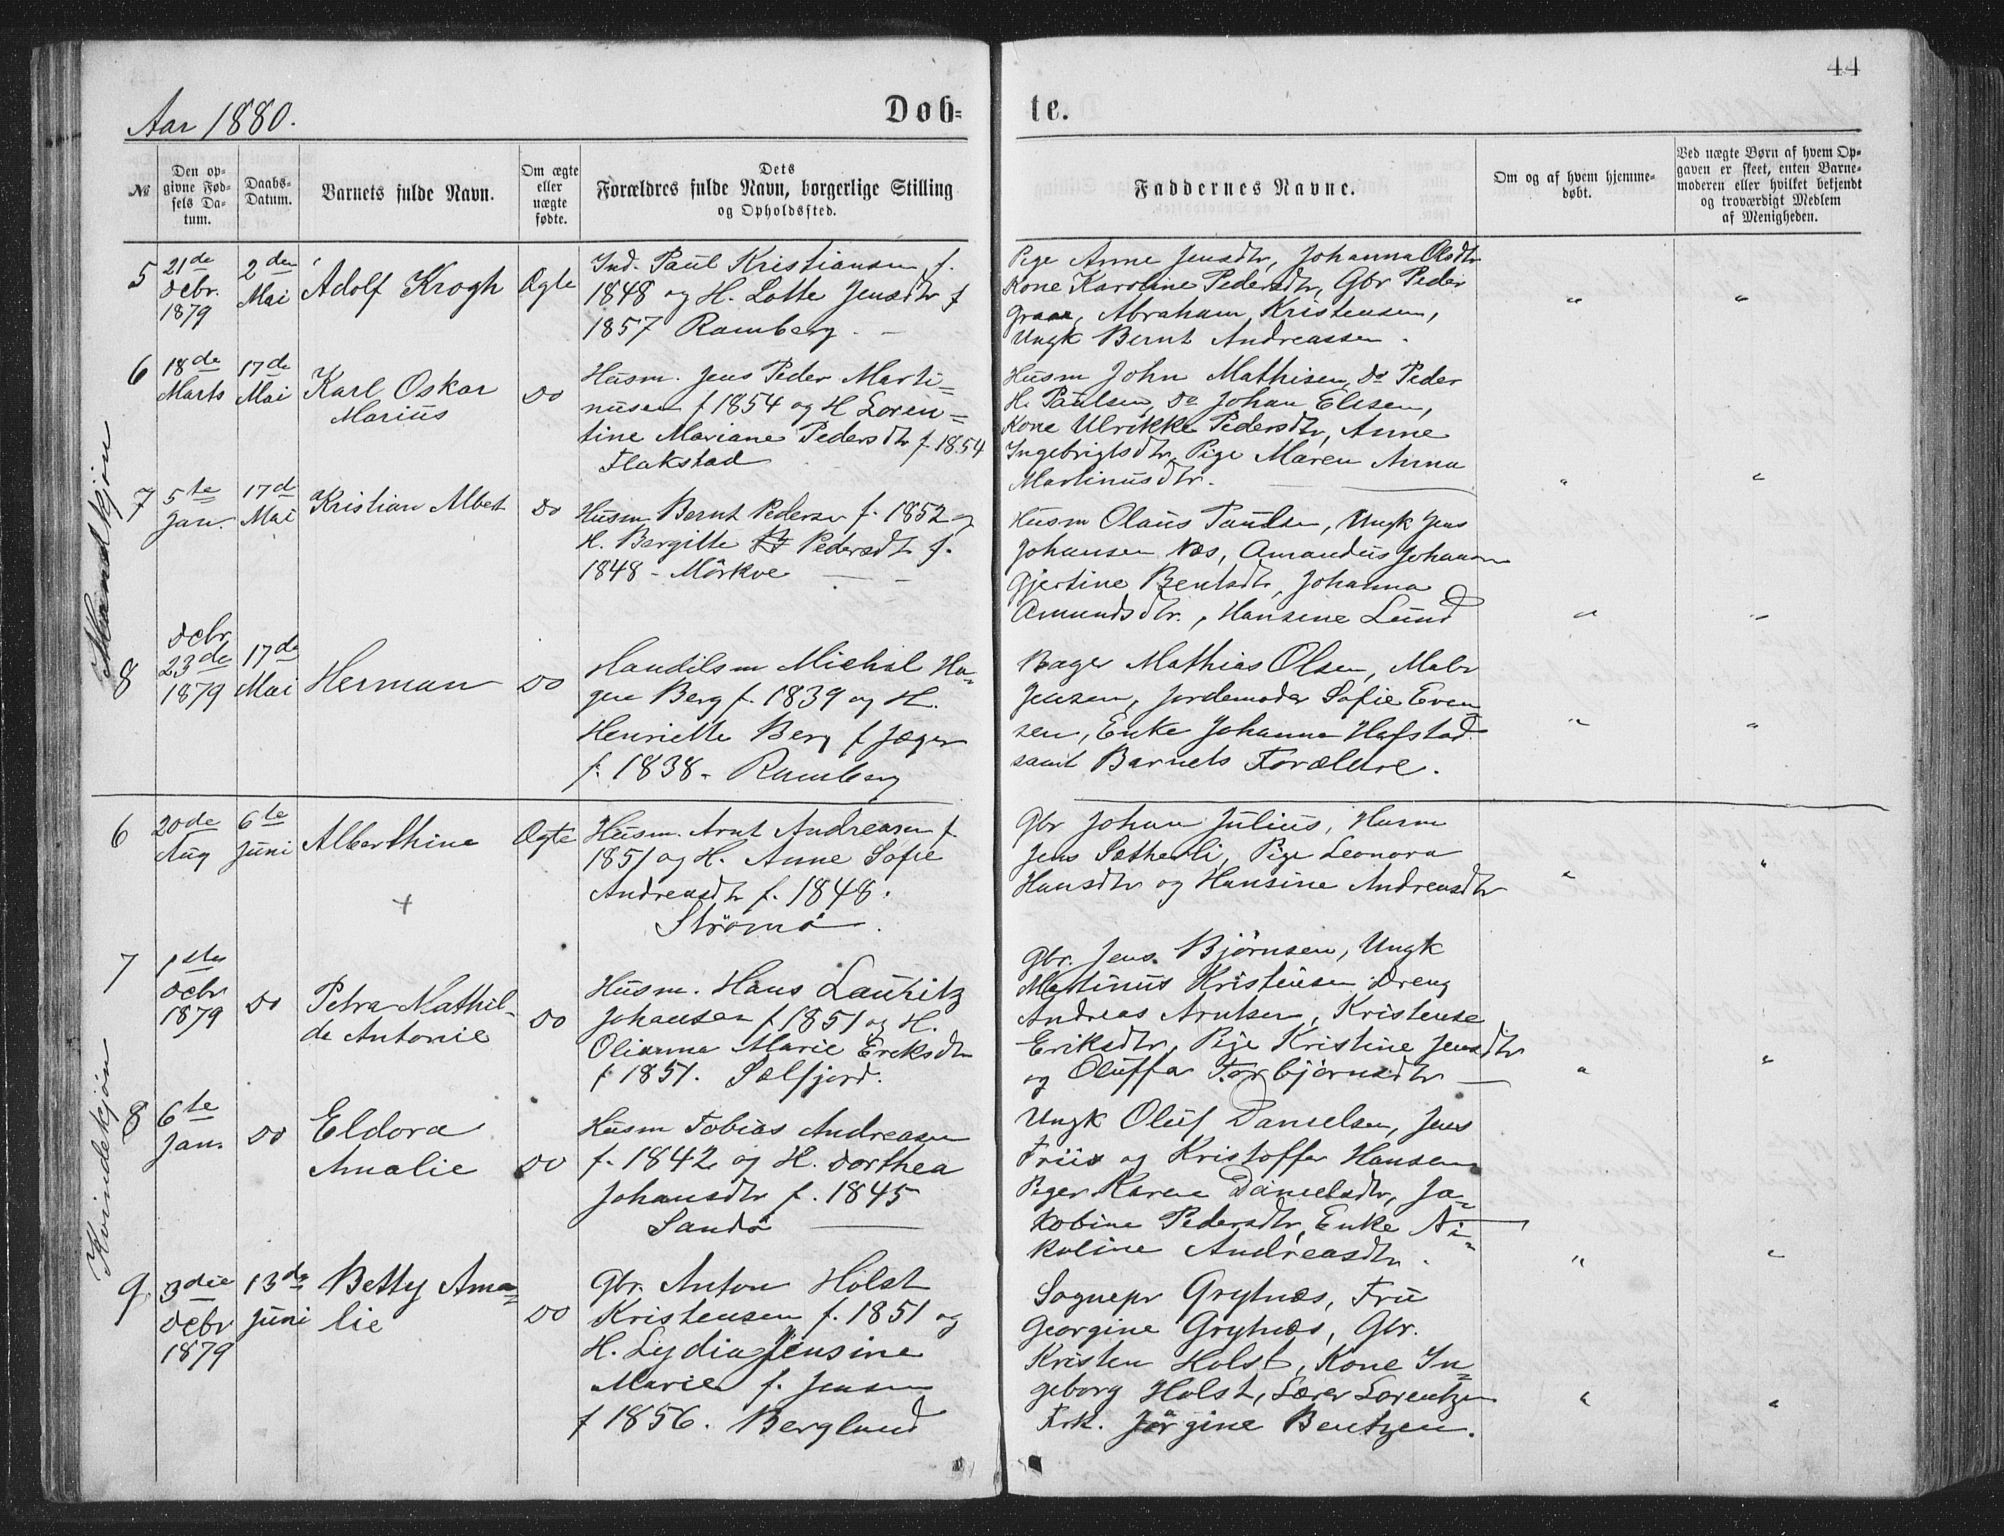 44
Aar 1880.
Døb-
te.
№
Den op-
givne Fød-
sels Da-
tum.
Daabs-
Datum.
Barnets fulde Navn.
Om ægte
eller
uægte
fødte.
Dets
Forældres fulde Navn, borgerlige Stilling
og Opholdssted.
Faddernes Navne.
Om og af hvem hjemme-
døbt.
Ved uægte Børn af hvem Op-
gaven er skeet, enten Barne-
moderen eller hvilket bekjendt
og troværdigt Medlem
af Menigheden.
Mandkjøn
5
21de
Debr.
1879
2den
Mai
Adolf Krogh
Ægte
Ind. Paul Kristiansen f.
1848 og H. Lotte Jensdtr f
1857 Ramberg. —
Pige Anne Jensdtr, Johanna Olsdtr
Kone Karoline Pedersdtr, Gbr Peder
Graae, Abraham Kristensen,
Ungk Bernt Andreassen.
"
"
6
18de
Marts
17de
Mai
Karl Oskar
Marius
Do
Husm. Jens Peder Marti-
nusen f 1854 og H Loren-
tine Mariane Pedersdtr f. 1854
Flakstad
Husm John Mathisen, Do Peder
H. Paulsen, Do Johan Elisen,
Kone Ulrikke Pedersdtr, Anne
Ingebrigtsdtr, Pige Maren Anna
Martinusdtr.
"
"
7
5te
Jan.
17de
Mai
Kristian Albert
Do
Husm Bernt Pedersen f. 1852 og
H. Bergitte Pedersdtr f.
1848 - Mörkve — -
Husm Olaus Paulsen, Ungk Jens
Johansen Næs, Amandus Johansen
Gjertine Bentsdtr, Johanna
Amundsdtr., Hansine Lund
"
"
8
Debr
23de
1879
17de
Mai
Herman
Do
Handelsm Michal Ha-
gen Berg f. 1839 og H.
Henriette Berg f Jæger
f. 1838. Ramberg
Bager Mathias Olsen, Mabr
Jensen, Jordemoder Sofie Even-
sen, Enke Johanna Hafstad
samt Barnets Forældre.
"
"
Kvindekjøn
6
20de
Aug
6te
Juni
Alberthine
+
Ægte
Husm. Arnt Andreasen f
1851 og H. Anne Sofie
Andreasdtr f. 1848.
Strömö.
Gbr Johan Julius, Husm
Jens Sætherli, Pige Leonora
Hansdtr og Hansine Andreasdtr
"
"
7
1ste
Debr
1879
Do
Petra Mathil-
de Antonie
Do
Husm. Hans Lauritz
Johansen f 1851 og H.
Olianna Marie Eriksdtr
f 1851. Sælfjord.
Gbr. Jens Björnsen, Ungk
Martinus Kristensen Dreng
Andreas Arntsen, Kristense
Eriksdtr, Pige Kristine Jensdtr
og Oluffa Torbjörnsdtr —
"
"
8
6te
Jan.
Do
Eldora
Amalie
Do
Husm Tobias Andreasen
f. 1842 og H. Dorthea
Johansdtr f. 1845
Sandö —
Ungk Oluf Danielsen, Jens
Friis og Kristoffer Hansen
Piger Karen Danielsdtr, Ja-
kobine Pedersdtr, Enke Ni-
koline Andreasdtr.
"
"
9
3die
Debr
1879
13de
Juni
Betty Ama-
lie
Do
Gbr. Anton Holst
Kristensen f. 1851 og
H. Lydia Jensine
Marie f. Jensen
f 1856. Berglund
Sognepr Grytnæs, Fru
Georgine Grytnæs, Gbr.
Kristen Holst, Kone In-
geborg Holst, Lærer Lorentzen
Frk. Jörgine Bentzen.
"
"